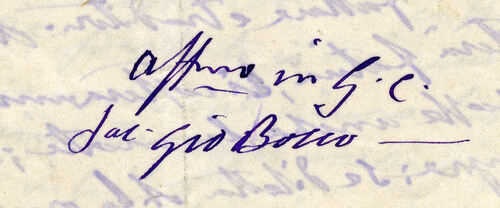 affmo in G. C.
Sac. Gio Bosco